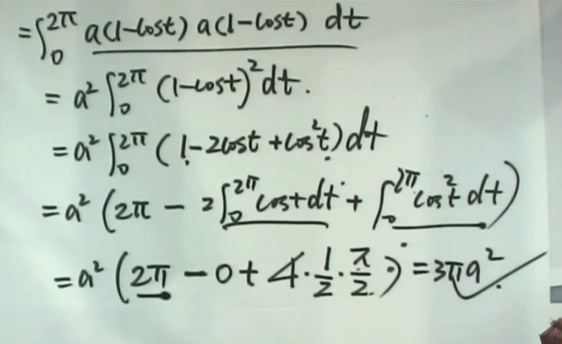 =∫₀^{2π} a(1-cost) a(1-cost) dt
= a² ∫₀^{2π} (1-cost)² dt.
= a² ∫₀^{2π} (1-2cost+cos²t)dt
= a² (2π - 2∫₀^{2π} cost dt + ∫₀^{2π} cos²t dt)
= a² (2π - 0 + 4·1/2·π/2) = 3πa²